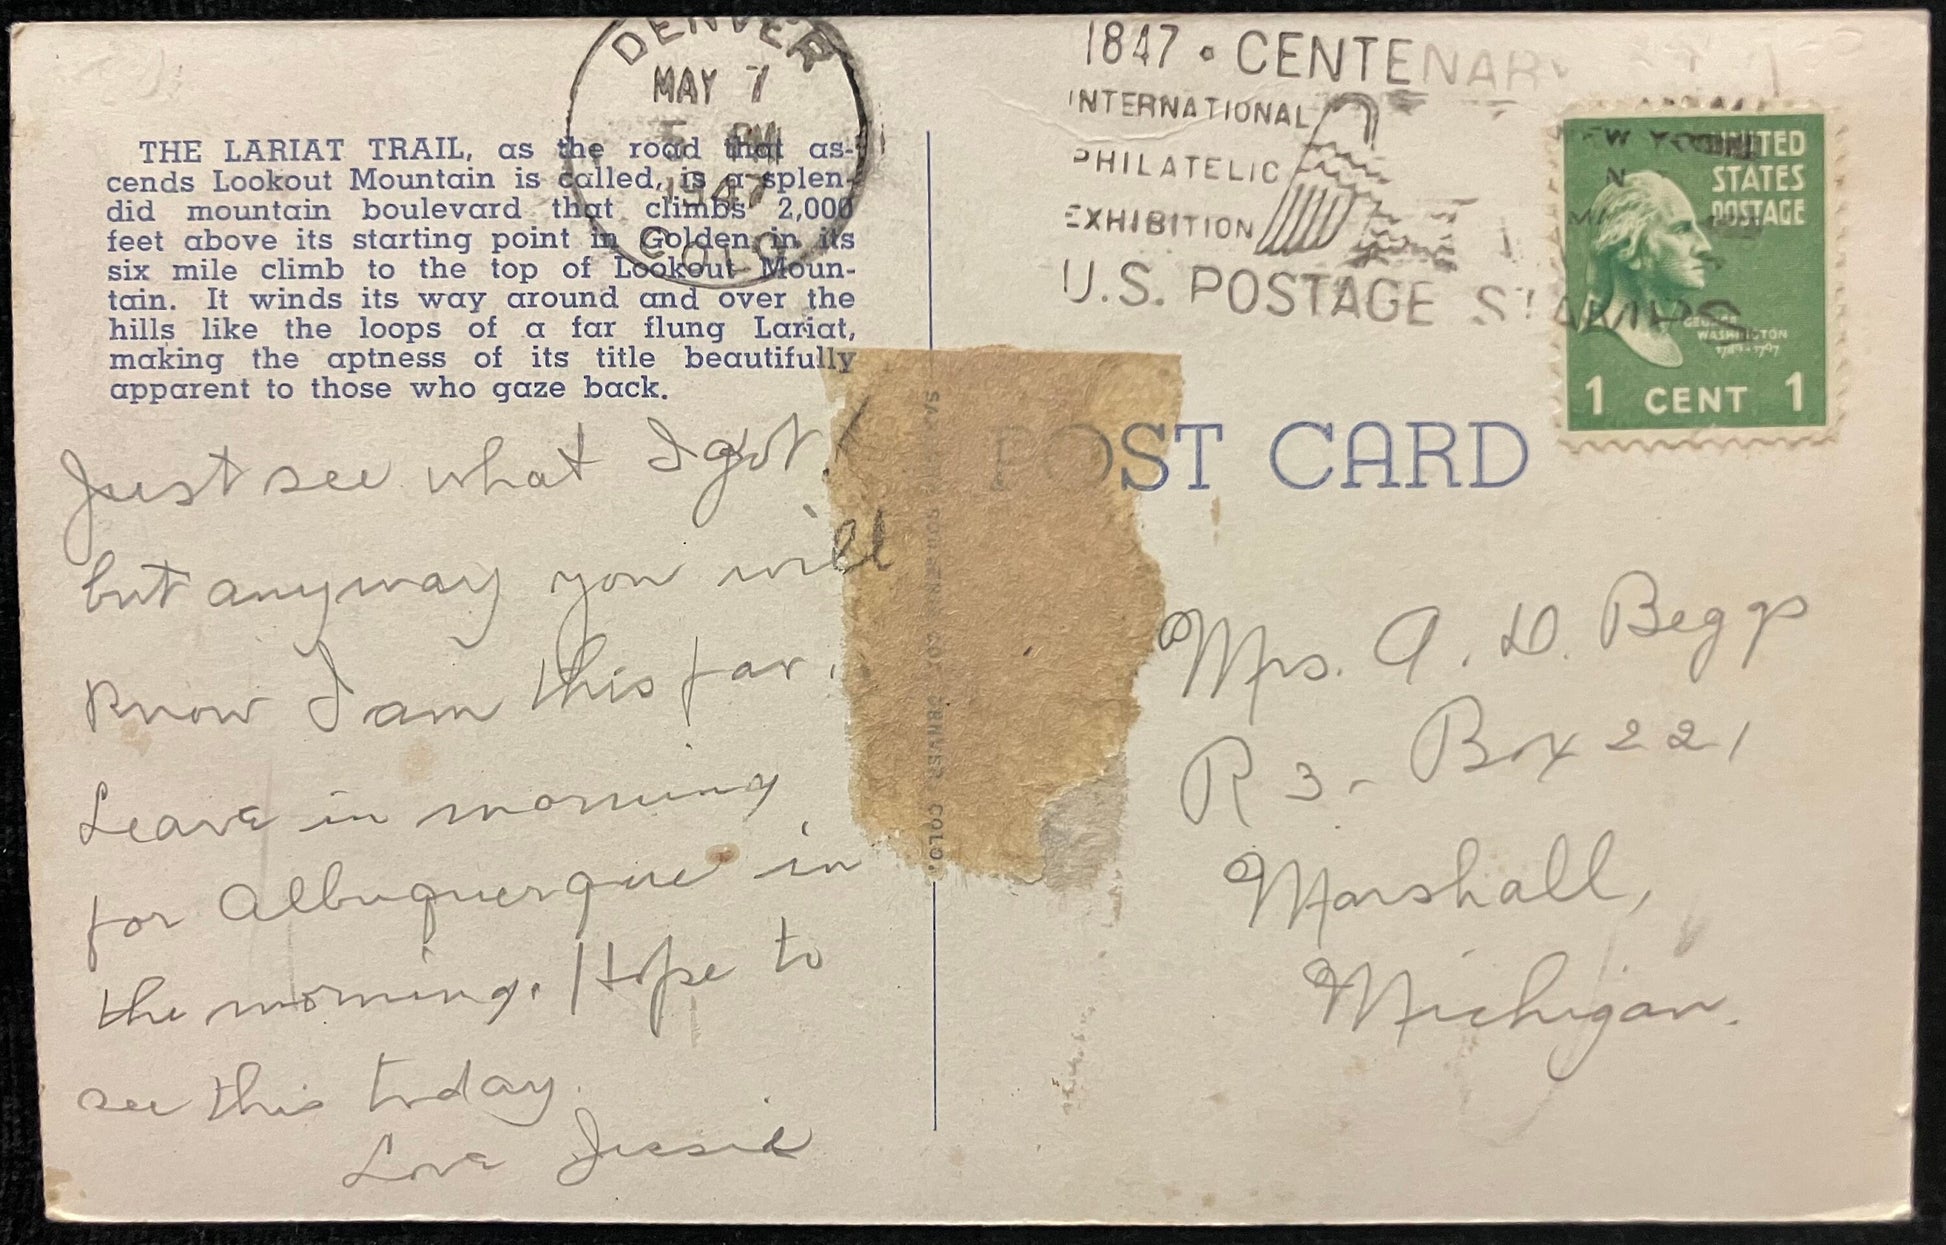 DENVER
MAY 7
5 PM
1947
COLO.
1847 • CENTENARY
INTERNATIONAL
PHILATELIC
EXHIBITION
U.S. POSTAGE STAMPS
NEW YORK
N
UNITED
STATES
POSTAGE
GEORGE
WASHINGTON
1789-1797
1 CENT 1
THE LARIAT TRAIL, as the road that as-
cends Lookout Mountain is called, is a splen-
did mountain boulevard that climbs 2,000
feet above its starting point in Golden, in its
six mile climb to the top of Lookout Moun-
tain. It winds its way around and over the
hills like the loops of a far flung Lariat,
making the aptness of its title beautifully
apparent to those who gaze back.
Just see what I got!
but anyway you will
know I am this far.
Leave in morning
for Albuquerque in
the morning. Hope to
see this today.
Love Jessie
SOUVENIR CO. DENVER COLO.
POST CARD
Mrs. A. D. Beggs
R 3 - Box 221
Marshall,
Michigan.